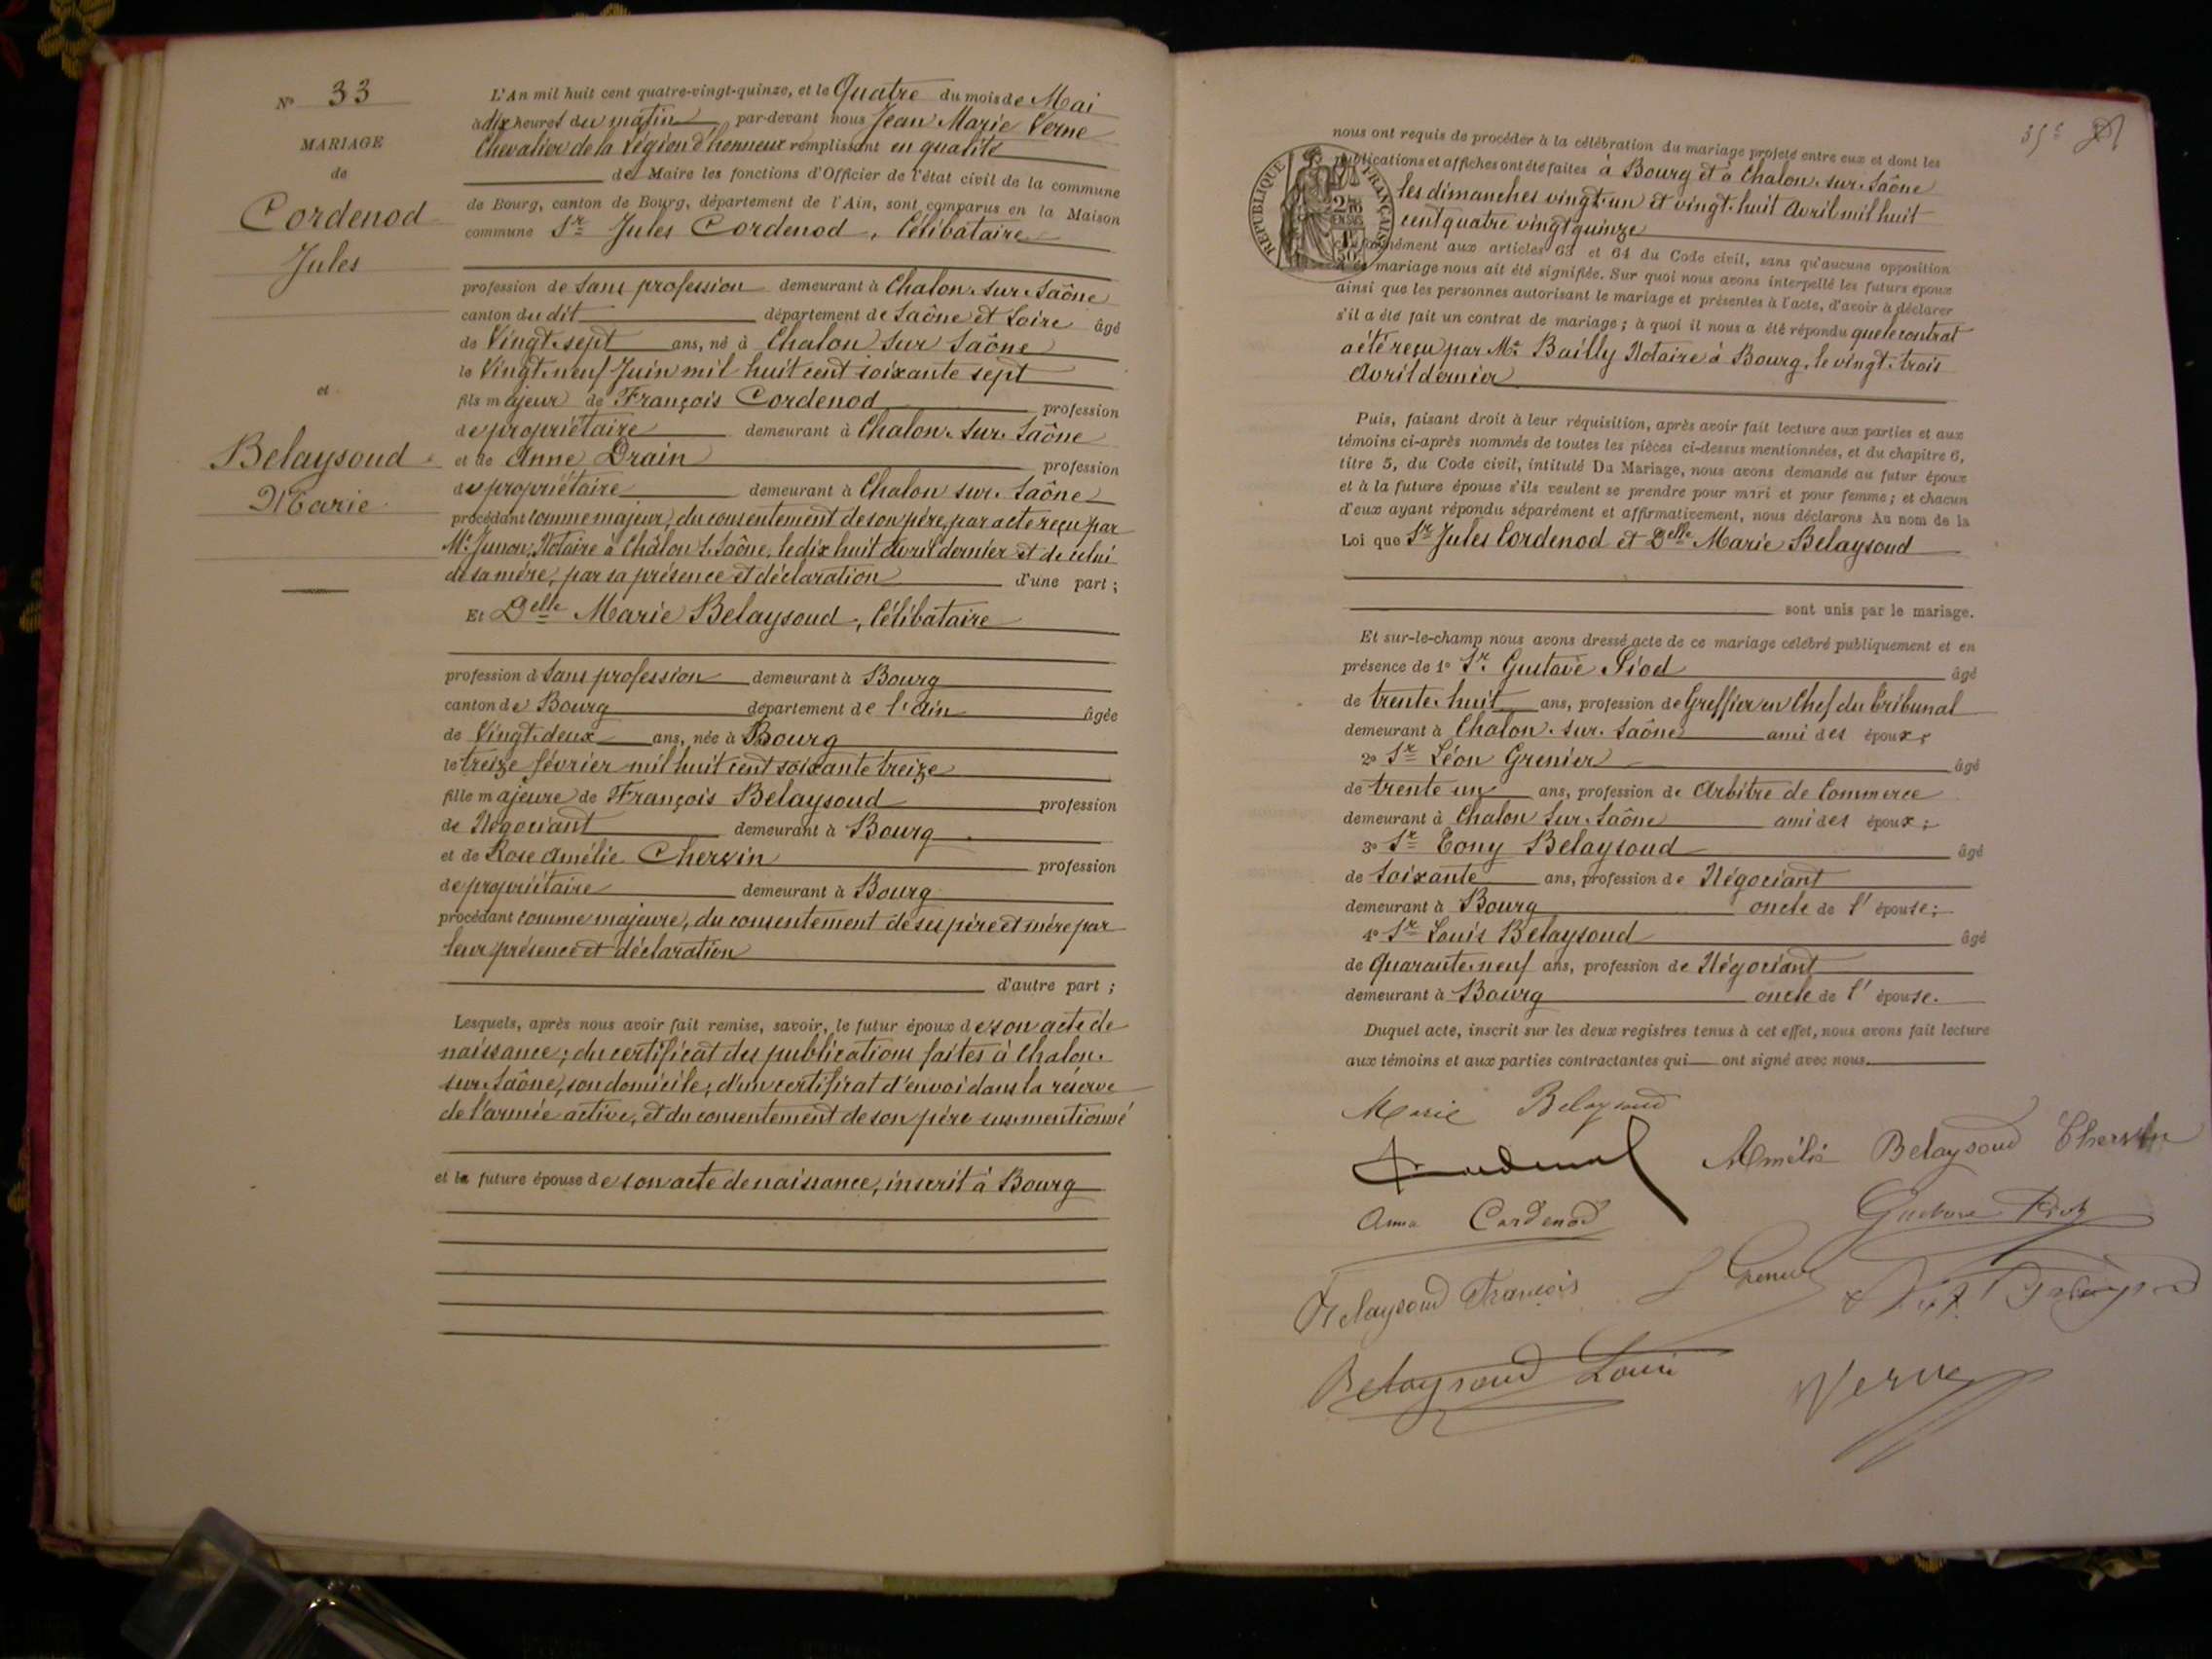 N° 33
MARIAGE
de
Cordenod
Jules
et
Belaysoud
Marie
L'An mil huit cent quatre-vingt-quinze, et le Quatre du mois de Mai
à dix heures du matin par-devant nous Jean Marie Verne
Chevalier de la Légion d'honneur remplissant en qualité
de Maire les fonctions d'Officier de l'état civil de la commune
de Bourg, canton de Bourg, département de l'Ain, sont comparus en la Maison
commune Sr Jules Cordenod, Célibataire
profession de sans profession demeurant à Chalon-sur-Saône
canton du dit département de Saône et Loire âgé
de Vingt-sept ans, né à Chalon sur Saône
le Vingt-neuf Juin mil huit cent soixante sept
fils majeur de François Cordenod profession
de propriétaire demeurant à Chalon-sur-Saône
et de Anne Drain profession
de propriétaire demeurant à Chalon sur-Saône
procédant comme majeur, du consentement de son père, par acte reçu par
Me Junon, Notaire à Châlon s. Saône, le dix huit Avril dernier et de celui
de sa mère, par sa présence et déclaration d'une part ;
Et Delle Marie Belaysoud, Célibataire
profession d sans profession demeurant à Bourg
canton de Bourg département de l'Ain âgée
de Vingt-deux ans, née à Bourg
le treize février mil huit cent soixante treize
fille majeure de François Belaysoud profession
de Négociant demeurant à Bourg
et de Rose Amélie Chervin profession
de propriétaire demeurant à Bourg
procédant comme majeure, du consentement de ses père et mère par
leur présence et déclaration
d'autre part ;
Lesquels, après nous avoir fait remise, savoir, le futur époux de son acte de
naissance ; du certificat des publications faites à Chalon-
sur-Saône, son domicile ; d'un certificat d'envoi dans la réserve
de l'armée active, et du consentement de son père sus-mentionné
et la future épouse de son acte de naissance, inscrit à Bourg
nous ont requis de procéder à la célébration du mariage projeté entre eux et dont les
publications et affiches ont été faites à Bourg et à Chalon-sur-Saône
les dimanches vingt-un et vingt-huit Avril mil huit
cent quatre vingt quinze
conformément aux articles 63 et 64 du Code civil, sans qu'aucune opposition
à ce mariage nous ait été signifiée. Sur quoi nous avons interpellé les futurs époux
ainsi que les personnes autorisant le mariage et présentes à l'acte, d'avoir à déclarer
s'il a été fait un contrat de mariage ; à quoi il nous a été répondu que le contrat
a été reçu par Me Bailly Notaire à Bourg, le vingt-trois
Avril dernier
Puis, faisant droit à leur réquisition, après avoir fait lecture aux parties et aux
témoins ci-après nommés de toutes les pièces ci-dessus mentionnées, et du chapitre 6,
titre 5, du Code civil, intitulé Du Mariage, nous avons demandé au futur époux
et à la future épouse s'ils veulent se prendre pour mari et pour femme ; et chacun
d'eux ayant répondu séparément et affirmativement, nous déclarons Au nom de la
Loi que Sr Jules Cordenod et Delle Marie Belaysoud
sont unis par le mariage.
Et sur-le-champ nous avons dressé acte de ce mariage célébré publiquement et en
présence de 1° Sr Gustave Piod âgé
de trente-huit ans, profession de Greffier en Chef du tribunal
demeurant à Chalon-sur-Saône ami des époux ;
2° Sr Léon Grenier âgé
de trente un ans, profession de Arbitre de Commerce
demeurant à Chalon sur-Saône ami des époux ;
3° Sr Tony Belaysoud âgé
de soixante ans, profession de Négociant
demeurant à Bourg oncle de l'épouse ;
4° Sr Louis Belaysoud âgé
de Quarante-neuf ans, profession de Négociant
demeurant à Bourg oncle de l'épouse.
Duquel acte, inscrit sur les deux registres tenus à cet effet, nous avons fait lecture
aux témoins et aux parties contractantes qui ont signé avec nous.
Marie Belaysoud
Amélie Belaysoud Chervin
Anna Cordenod
Gustave Piod
Belaysoud François
L Grenier
Belaysoud Louis
Verne
REPUBLIQUE FRANÇAISE